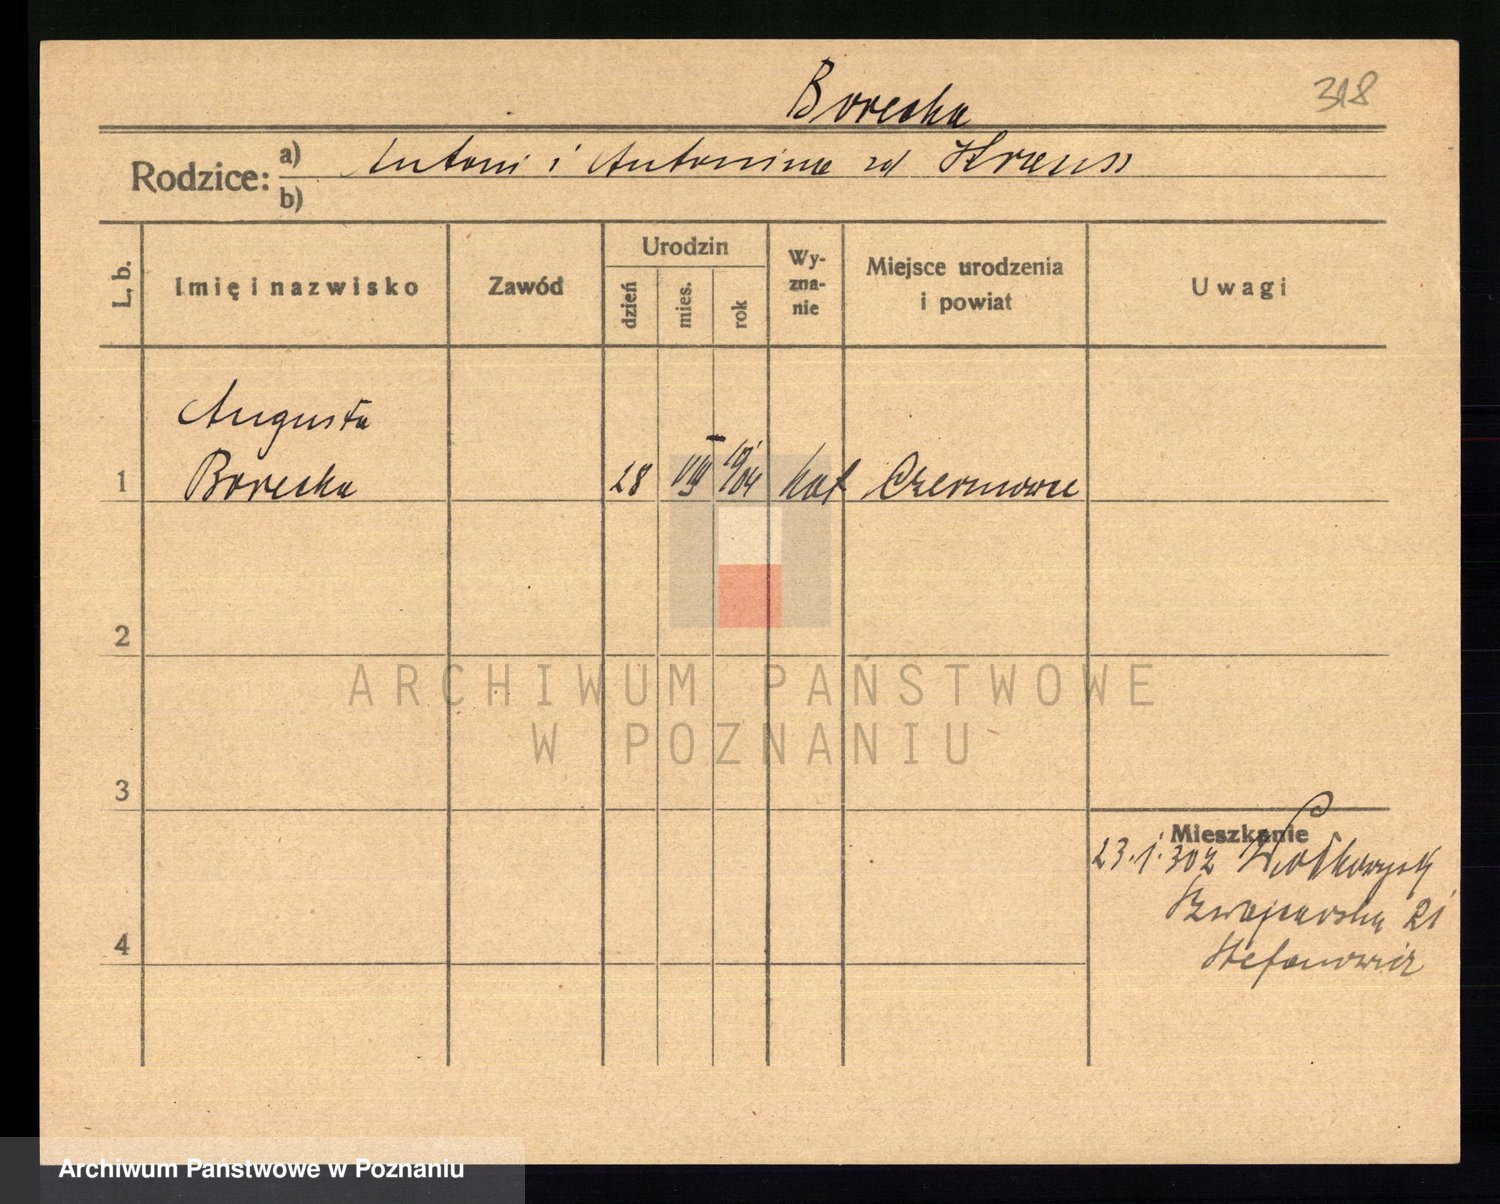 Borecka
318
Rodzice: a) Antoni i Antonina zd Krauss
b)
L. b. Imię i nazwisko Zawód Urodzin dzień mies. rok Wy-zna-nie Miejsce urodzenia i powiat Uwagi
Augusta
1 Borecka 28 VIII 1904 kat
2
ARCHIWUM PAŃSTWOWE
W POZNANIU
3
Mieszkanie
23.1.30 z
Szwajcarska 21
4
Stefanowicz
Archiwum Państwowe w Poznaniu